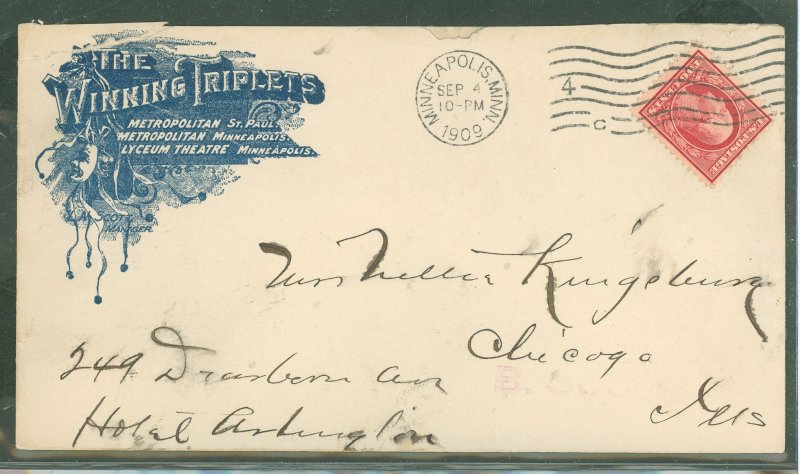 THE
WINNING TRIPLETS
METROPOLITAN ST. PAUL.
METROPOLITAN MINNEAPOLIS.
LYCEUM THEATRE MINNEAPOLIS.
L.N. SCOTT
MANAGER.
MINNEAPOLIS, MINN.
SEP 4
10-PM
1909
4
C
U.S. POSTAGE
Mrs Nellie Kingsbury
Chicago
249 Dearborn Ave
Ills
Hotel